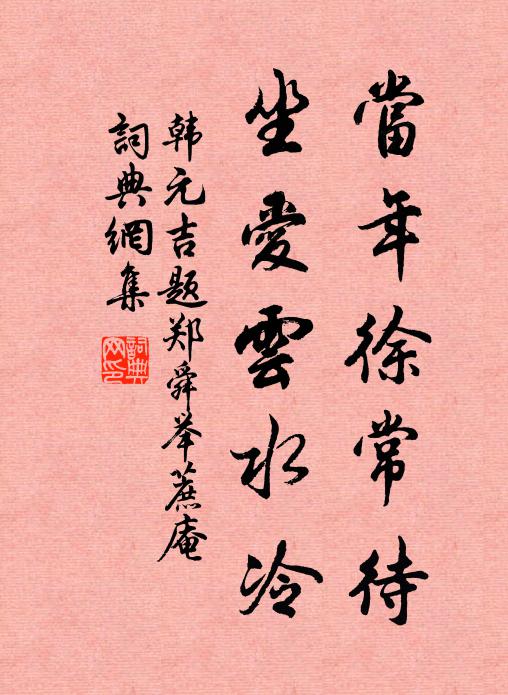 當年徐常待
坐愛雲水冷
韩元吉题郑舜举蔗庵
詞典網集
詞典
网印